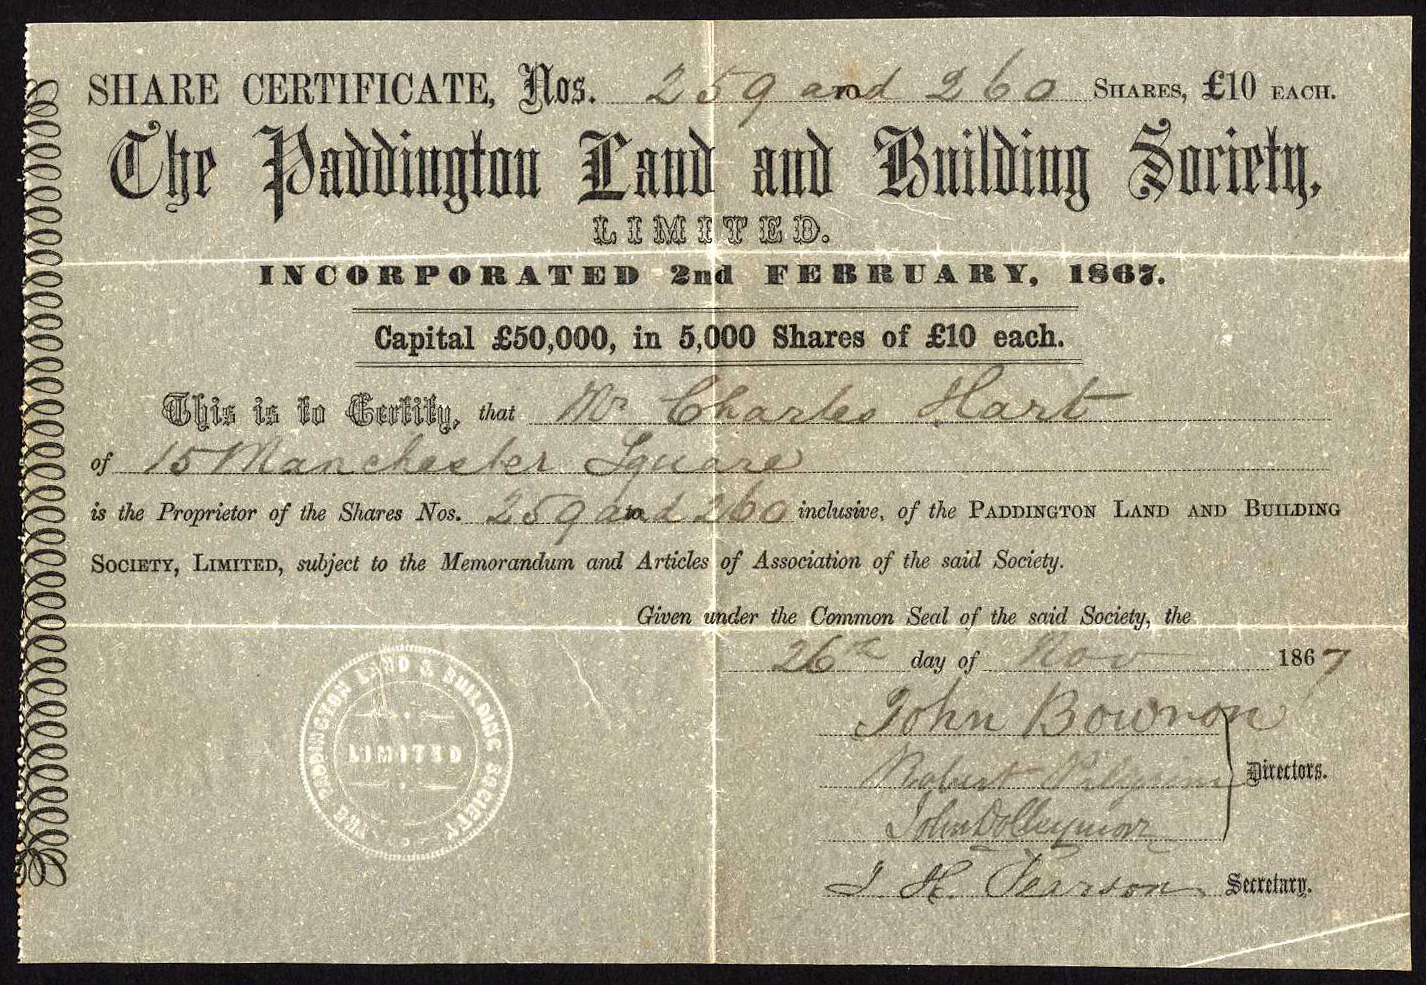 SHARE CERTIFICATE, Nos. 259 and 260 SHARES, £10 EACH.
The Paddington Land and Building Society,
LIMITED.
INCORPORATED 2nd FEBRUARY, 1867.
Capital £50,000, in 5,000 Shares of £10 each.
This is to Certify, that Mr Charles Hart
of 15 Manchester Square
is the Proprietor of the Shares Nos. 259 and 260 inclusive, of the PADDINGTON LAND AND BUILDING
SOCIETY, LIMITED, subject to the Memorandum and Articles of Association of the said Society.
Given under the Common Seal of the said Society, the
26th day of Nov 1867
John Bowron
Robert Pilgrim Directors.
John Dolleymore
J. H. Pearson Secretary.
THE PADDINGTON LAND & BUILDING SOCIETY
LIMITED